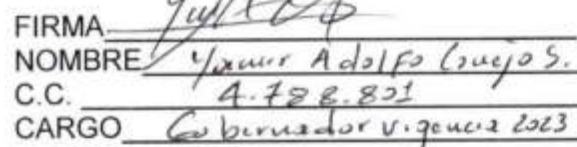 FIRMA
NOMBRE Yamir Adolfo Conejo S.
C.C. 4.788.801
CARGO Gobernador vigencia 2023